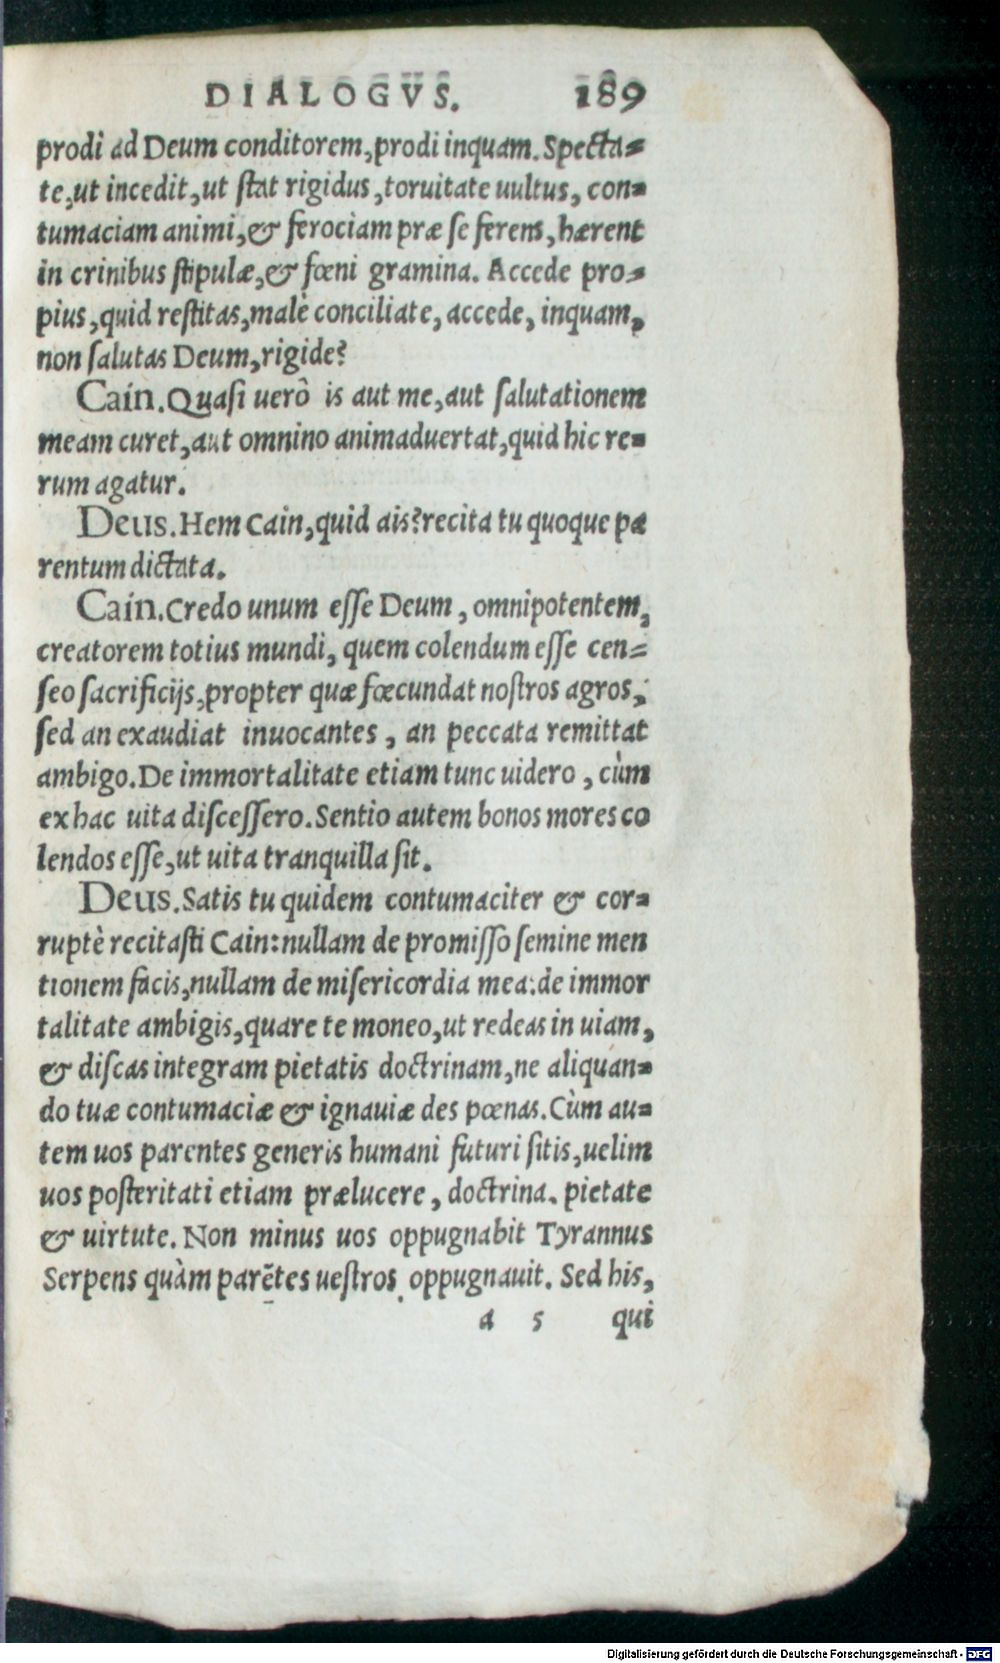 DIALOGVS. 189
prodi ad Deum conditorem, prodi inquam. Specta-
te, ut incedit, ut stat rigidus, toruitate uultus, con-
tumaciam animi, & ferociam præ se ferens, hærent
in crinibus stipulæ, & fœni gramina. Accede pro-
pius, quid restitas, malè conciliate, accede, inquam,
non salutas Deum, rigide?
Cain. Quasi uerò is aut me, aut salutationem
meam curet, aut omnino animaduertat, quid hic re-
rum agatur.
Deus. Hem Cain, quid ais? recita tu quoque pa
rentum dictata.
Cain. Credo unum esse Deum, omnipotentem,
creatorem totius mundi, quem colendum esse cen-
seo sacrificijs, propter quæ fœcundat nostros agros,
sed an exaudiat inuocantes, an peccata remittat
ambigo. De immortalitate etiam tunc uidero, cùm
ex hac uita discessero. Sentio autem bonos mores co
lendos esse, ut uita tranquilla sit.
Deus. Satis tu quidem contumaciter & cor-
ruptè recitasti Cain: nullam de promisso semine men
tionem facis, nullam de misericordia mea: de immor
talitate ambigis, quare te moneo, ut redeas in uiam,
& discas integram pietatis doctrinam, ne aliquan-
do tuæ contumaciæ & ignauiæ des pœnas. Cùm au-
tem uos parentes generis humani futuri sitis, uelim
uos posteritati etiam prælucere, doctrina, pietate
& uirtute. Non minus uos oppugnabit Tyrannus
Serpens quàm parẽtes uestros oppugnauit. Sed his,
a 5 qui
Digitalisierung gefördert durch die Deutsche Forschungsgemeinschaft - DFG